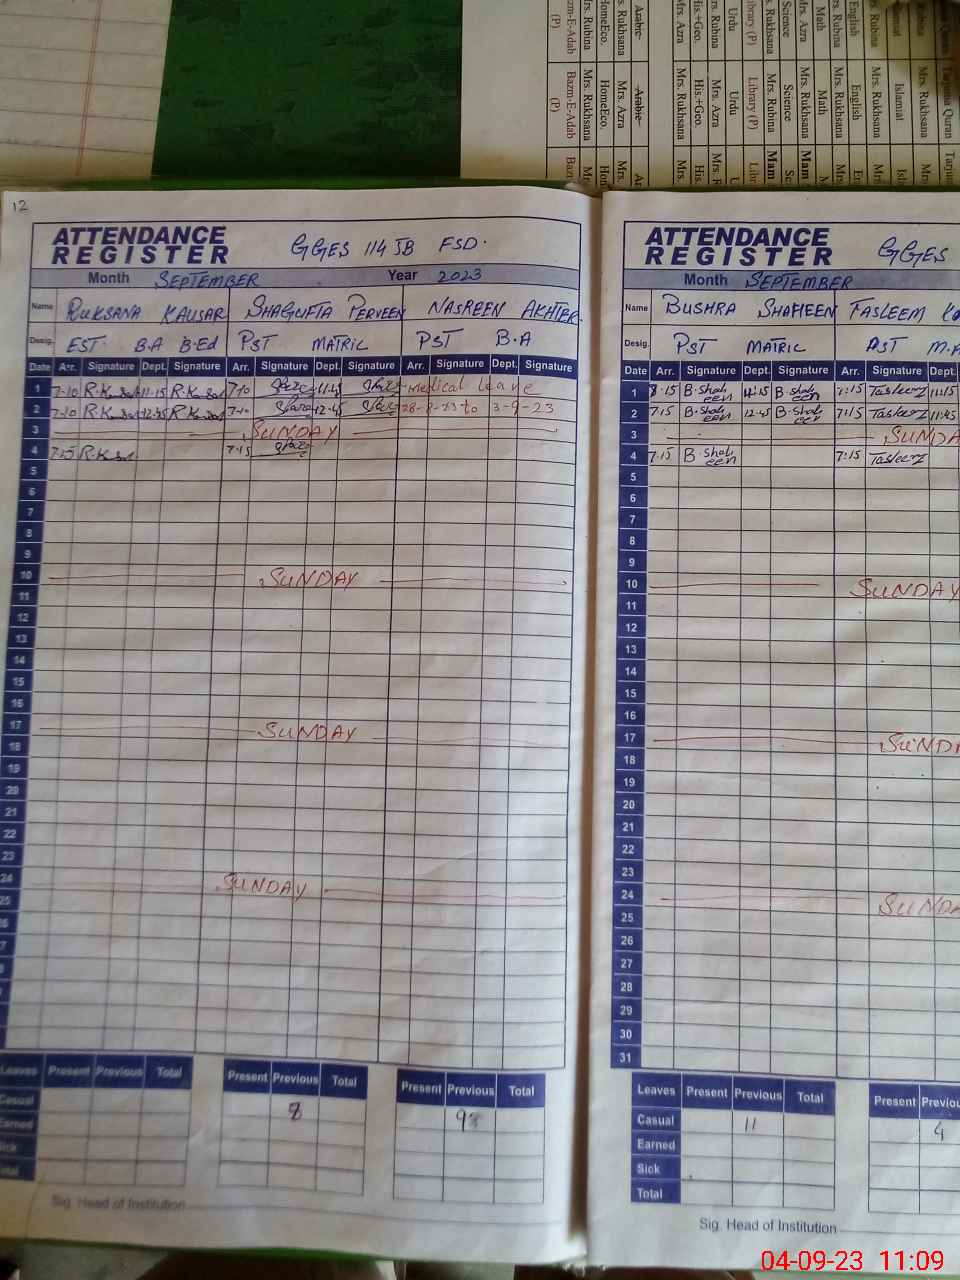 Arabic
Mrs. Rukhsana
HomeEco.
Mrs. Rubina
Bazm-E-Adab
(P)
Arabic
Mrs. Azra
HomeEco.
Mrs. Rukhsana
Bazm-E-Adab
(P)
Mrs. Azra
His.+Geo.
Mrs. Rubina
Urdu
Library (P)
Mrs. Rukhsana
Science
Mrs. Azra
Math
Mrs. Rubina
English
Mrs. Rukhsana
His.+Geo.
Mrs. Azra
Urdu
Library (P)
Mrs. Rubina
Science
Mrs. Rukhsana
Math
Mrs. Rukhsana
English
Mrs. Rukhsana
Islamiat
Mrs. Rukhsana
Tarjuma Quran
12
ATTENDANCE
REGISTER
GGES 114 JB FSD.
Month SEPTEMBER Year 2023
Name RUKSANA KAUSAR SHAGUFTA PERVEEN NASREEN AKHTER
Desig. EST B.A B-Ed PST MATRIC PST B.A
Date Arr. Signature Dept. Signature Arr. Signature Dept. Signature Arr. Signature Dept. Signature
1 7-10 11-15 7-10 11-45 Medical Leave
2 7-10 12-45 7-10 12-45 28-8-23 to 3-9-23
3 SUNDAY
4 7-15 7-15
5
6
7
8
9
10 SUNDAY
11
12
13
14
15
16
17 SUNDAY
18
19
20
21
22
23
24 SUNDAY
25
Leaves Present Previous Total Present Previous Total Present Previous Total
Casual 8
Earned
Sick
Total
Sig. Head of Institution
ATTENDANCE
REGISTER
GGES
Month SEPTEMBER
Name BUSHRA SHAHEEN TASLEEM
Desig. PST MATRIC PST M.A
Date Arr. Signature Dept. Signature Arr. Signature Dept.
1 B.Shaheen 12:15 B.Shaheen 7:15 Tasleem 11:15
2 7:15 B.Shaheen 12:45 B.Shaheen 7:15 Tasleem 11:45
3 SUNDA
4 7:15 B.Shaheen 7:15 Tasleem
5
6
7
8
9
10 SUNDAY
11
12
13
14
15
16
17 SUNDA
18
19
20
21
22
23
24 SUNDA
25
26
27
28
29
30
31
Leaves Present Previous Total Present Previou
Casual 11 4
Earned
Sick
Total
Sig. Head of Institution
04-09-23 11:09